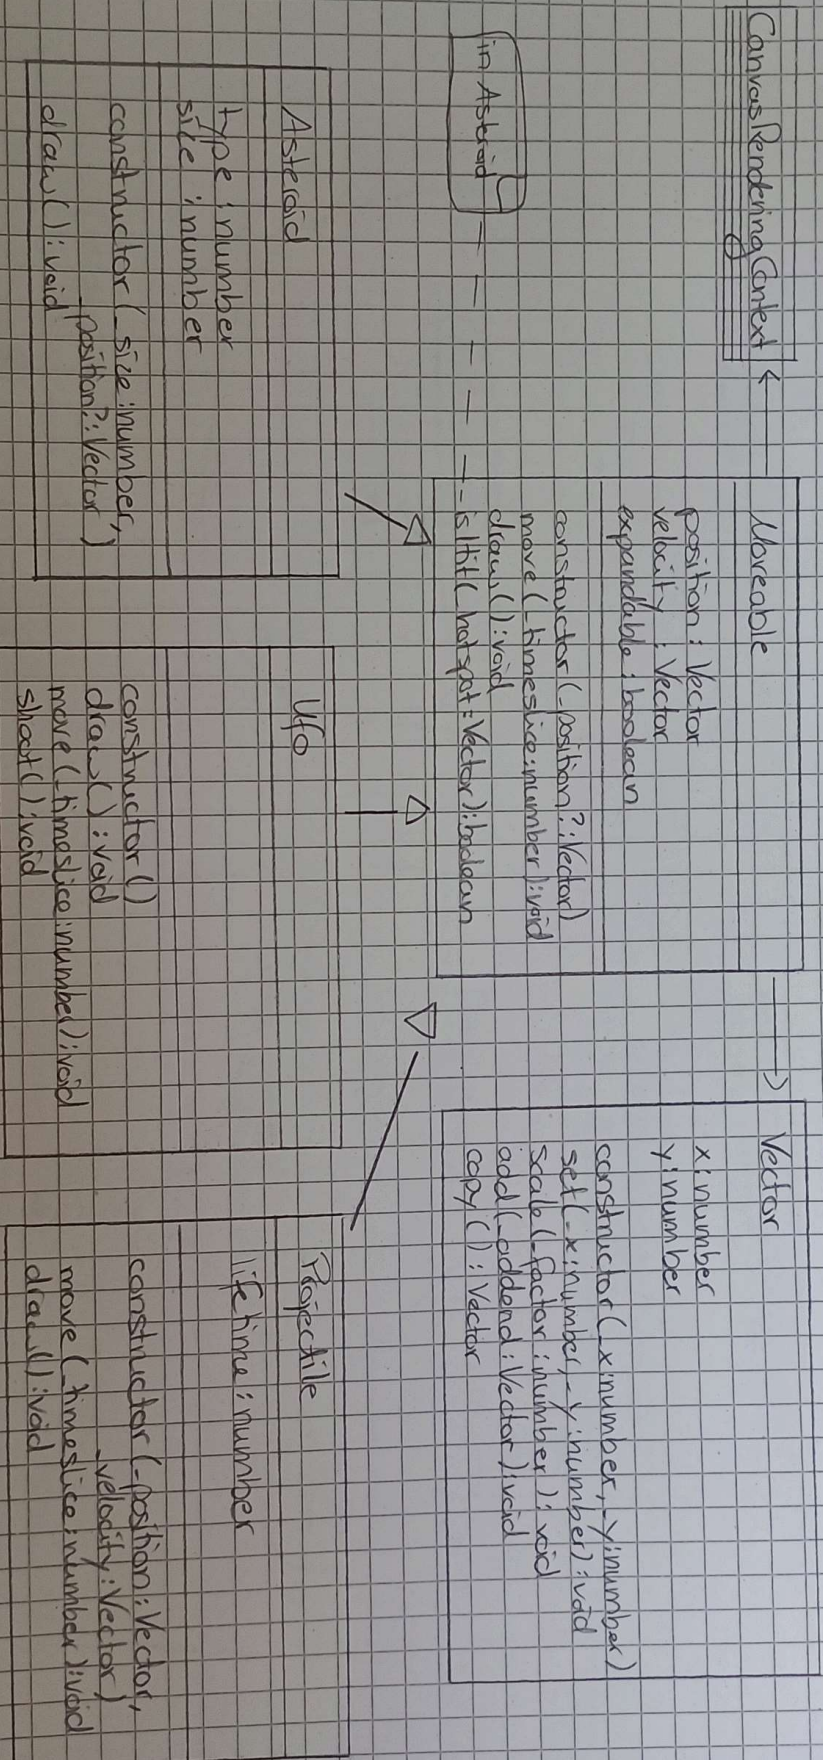 CanvasRenderingContext
Moveable
position : Vector
velocity : Vector
expandable : boolean
constructor (_position? : Vector)
move (_timeslice : number) : void
draw () : void
isHit (_hotspot : Vector) : boolean
in Asteroid
Vector
x : number
y : number
constructor (_x : number, _y : number)
set (_x : number, _y : number) : void
scale (_factor : number) : void
add (_addend : Vector) : void
copy () : Vector
Asteroid
type : number
size : number
constructor (_size : number,
_position? : Vector)
draw () : void
Ufo
constructor ()
draw () : void
move (_timeslice : number) : void
shoot () : void
Projectile
lifetime : number
constructor (_position : Vector,
_velocity : Vector)
move (_timeslice : number) : void
draw () : void